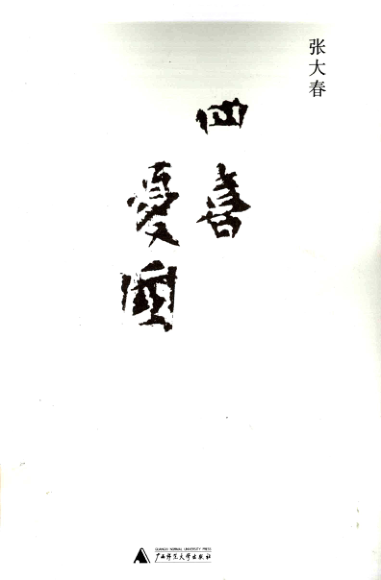 张大春
四喜
憂國
GUANGXI NORMAL UNIVERSITY PRESS
广西师范大学出版社